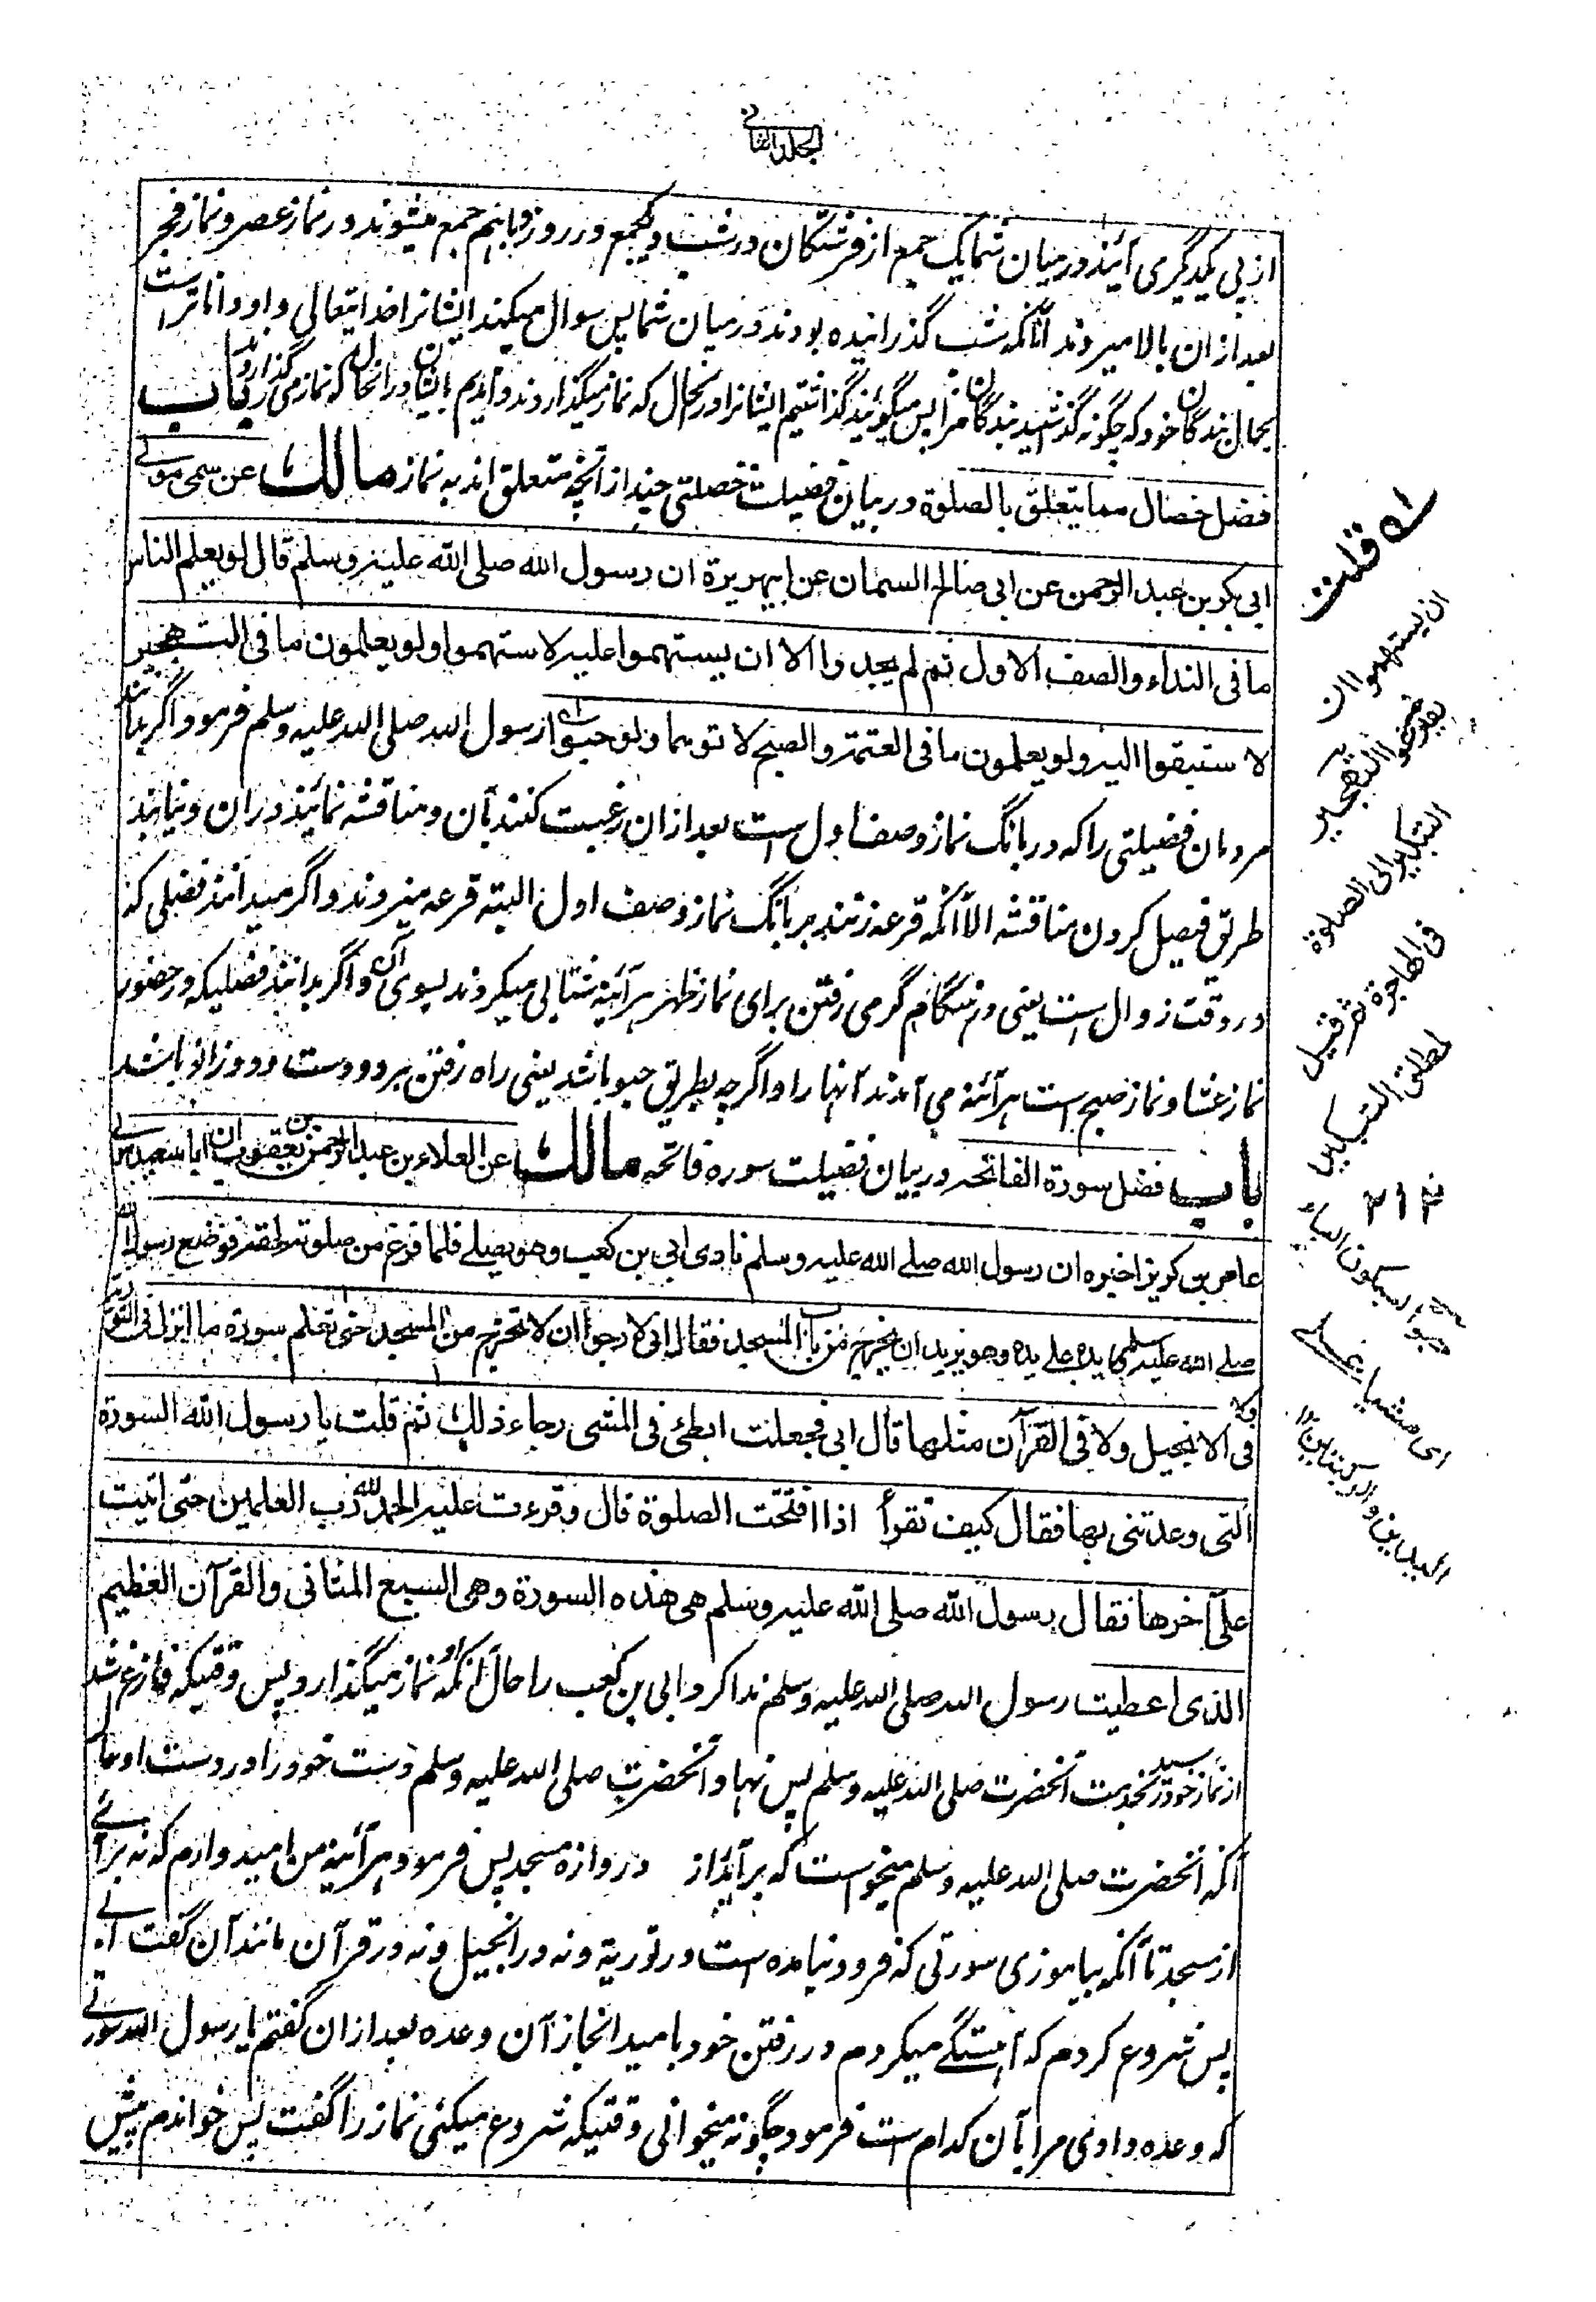 الجلد الثانی
از پی یکدیگر می آیند در میان شما یک جمع از فرشتگان در شب و یک جمع در روز و باہم جمع میشوند در نماز عصر و نماز فجر
بعد ازان بالا میروند آنانکہ شب گذرانیده بودند در میان شما پس سوال میکند ایشانرا خدایتعالی و او داناتر است
بحال بندگان خود کہ چگونہ گذاشتید بندگان مرا پس میگویند گذاشتیم ایشانرا در حال کہ نماز میگذاردند و آمدیم بایشان در انحال کہ نماز می گذاردند باب
فضل خصال مما یتعلق بالصلوة در بیان فضیلت خصلتی چند از آنچہ متعلق اند بہ نماز مالك عن سمی مولی
ابی بکر بن عبد الرحمن عن ابی صالح السمان عن ابیهریرة ان رسول الله صلی الله علیہ وسلم قال لو یعلم الناس
ما فی النداء والصف الاول ثم لم یجدوا الا ان یستهموا علیہ لاستهموا ولو یعلمون ما فی التهجیر
لاستبقوا الیہ ولو یعلمون ما فی العتمة والصبح لاتوهما ولو حبوا رسول الله صلی الله علیہ وسلم فرمود اگر بدانند
مردمان فضیلتی را کہ در بانگ نماز و صف اول است بعد ازان رغبت کنند بآن و مناقشہ نمایند دران و نیابند
طریق فیصل کردن مناقشہ الا آنکہ قرعہ زنند بر بانگ نماز و صف اول البتہ قرعہ میزدند و اگر میدانند فضلی کہ
در وقت زوال است یعنی در ہنگام گرمی رفتن برای نماز ظہر ہر آئینہ شتابی میکردند بسوی آن و اگر بدانند فضلیکہ در حضور
نماز عشا و نماز صبح است ہر آئنہ می آمدند آنہا را و اگرچہ بطریق حبو باشد یعنی راه رفتن بر دو دست و دو زانو باشد
باب فضل سورة الفاتحہ در بیان فضیلت سوره فاتحہ مالك عن العلاء بن عبد الرحمن بن یعقوب ان ابا سعید مولی
عامر بن کریز اخبره ان رسول الله صلے الله علیہ وسلم نادی ابی بن کعب وهو یصلے فلما فرغ من صلوتہ لحقہ فوضع رسول الله
صلے الله علیہ وسلم یده علے یده وهو یرید ان یخرج من باب المسجد فقال انی لارجوا ان لا تخرج من المسجد حتی تعلم سورة ما انزل فی التوریة
ولا فی الانجیل ولا فی القرآن مثلها قال ابی فجعلت ابطئ فی المشی رجاء ذلك ثم قلت یا رسول الله السورة
التی وعدتنی بها فقال کیف تقرأ اذا افتتحت الصلوة قال وقرءت علیہ الحمد لله رب العلمین حتی اتیت
علی آخرها فقال رسول الله صلی الله علیہ وسلم هی هذه السورة وهی السبع المثانی والقرآن العظیم
الذی اعطیت رسول الله صلی الله علیہ وسلم ندا کرد ابی بن کعب را حال آنکہ او نماز میگذارد پس وقتیکہ فارغ شد
از نماز خود رسید بخدمت آنحضرت صلی الله علیہ وسلم پس نہاد آنحضرت صلی الله علیہ وسلم دست خود را در دست او حال
آنکہ آنحضرت صلی الله علیہ وسلم میخواست کہ برآید از دروازه مسجد پس فرمود ہر آئینہ من امیدوارم کہ نہ برآئی
از مسجد تا آنکہ بیاموزی سورتی کہ فرود نیامده است در توریة و نہ در انجیل و نہ در قرآن مانند آن گفت ابی
پس شروع کردم کہ آہستگی میکردم در رفتن خود بامید انجاز آن وعده بعد ازان گفتم یا رسول الله سورتی
کہ وعده دادی مرا بآن کدام است فرمود چگونہ میخوانی وقتیکہ شروع میکنی نماز را گفت پس خواندم پیش
قلت
ان یستهموا ان
یقترعوا التهجیر
التبکیر الی الصلوة
فی الهاجرة ثم قیل
لمطلق التبکیر
۱۲ م۲
حبوا بسکون الباء
ای مشیا علے
الیدین والرکبتین ۱۲